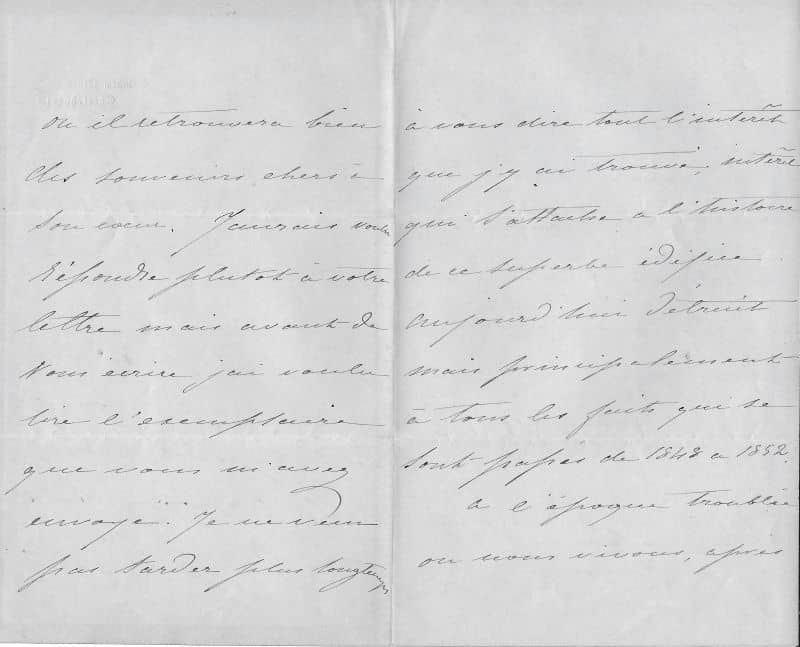 ou il retrouvera bien
des souvenirs chers à
son cœur. J'aurais voulu
répondre plutot à votre
lettre mais avant de
vous écrire j'ai voulu
lire l'exemplaire
que vous m'avez
envoyé. Je ne veux
pas tarder plus longtemps
à vous dire tout l'intérêt
que j'y ai trouvé, intérêt
qui s'attache a l'histoire
de ce superbe édifice
aujourd'hui détruit
mais principalement
à tous les faits qui se
sont passés de 1848 a 1852.
a l'époque troublée
ou nous vivons, après